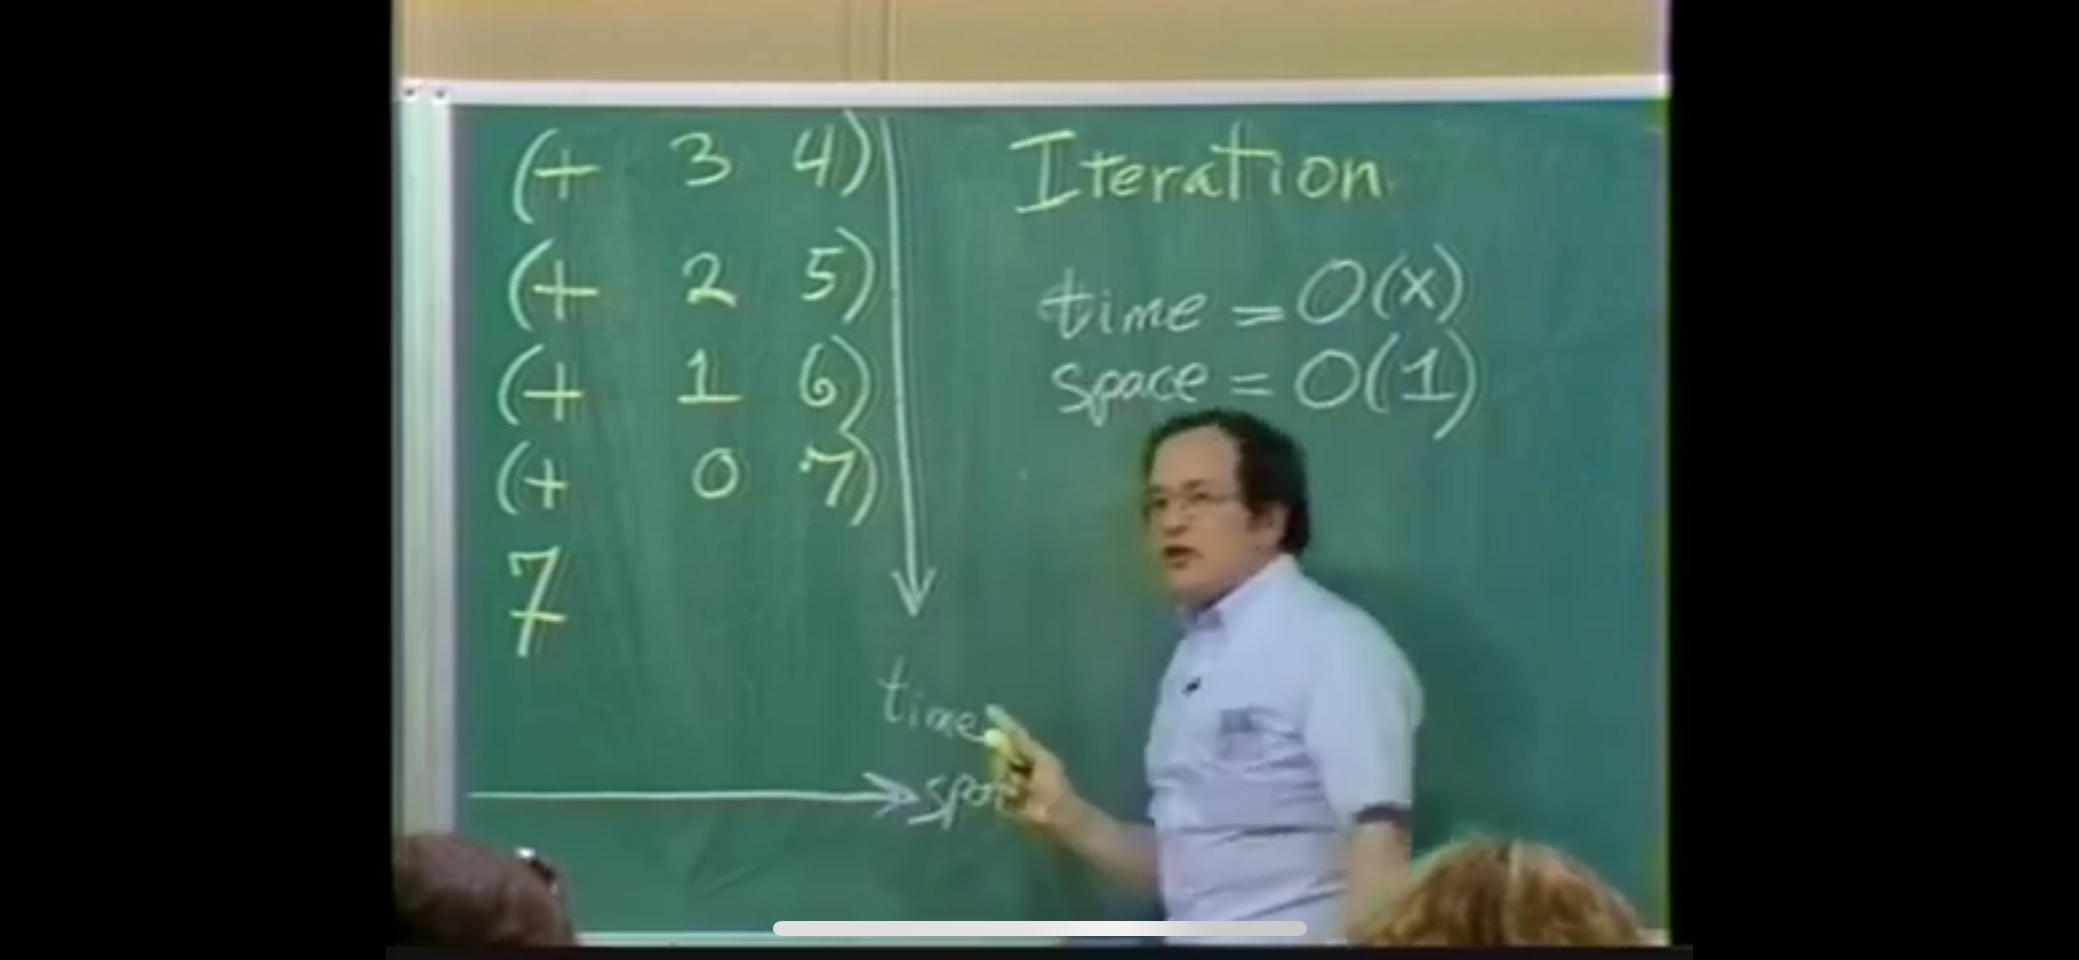 (+ 3 4)
(+ 2 5)
(+ 1 6)
(+ 0 7)
7
time
Iteration
time = O(x)
space = O(1)